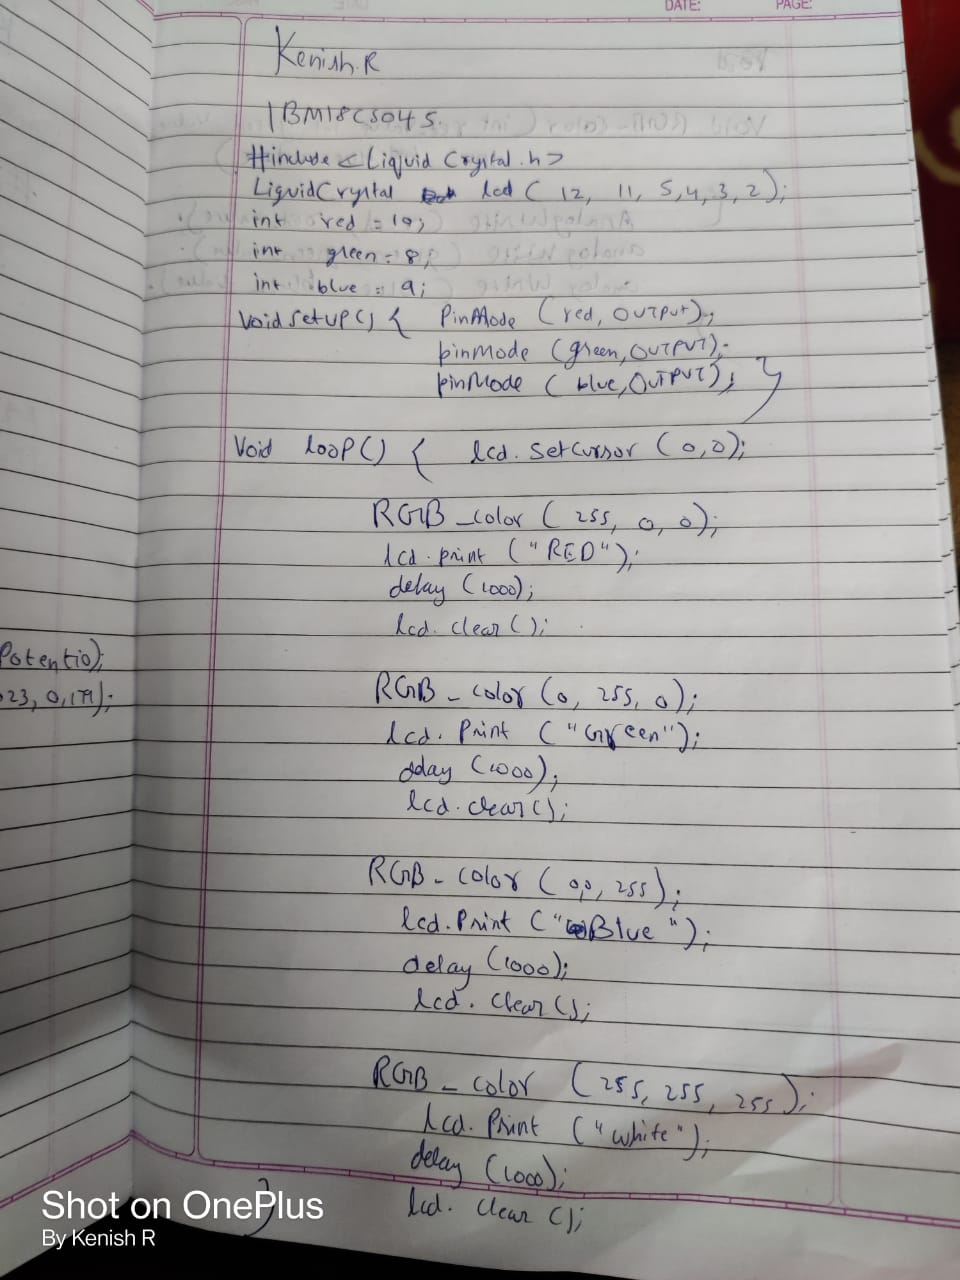 DATE: PAGE:
Kenish.R
1BM18CS045.
#include < Liquid Crystal.h>
LiquidCrystal lcd ( 12, 11, 5,4,3,2);
int red = 10;
int green = 8;
int blue = 9;
Void setUP() { PinMode (red, OUTPUT);
pinMode (green,OUTPUT);
pinMode ( blue,OUTPUT); }
Void looP() { lcd. setCursor (0,0);
RGB_color ( 255, 0, 0);
lcd.print ("RED");
delay (1000);
lcd. clear();
Potentio);
023, 0,179);
RGB_color (0, 255, 0);
lcd. Print ("Green");
delay (1000);
lcd.clear();
RGB_color ( 0,0, 255);
lcd.Print ("Blue");
delay (1000);
lcd. clear();
RGB_color (255, 255, 255);
lcd. Print ("white");
delay (1000);
} lcd. clear();
Shot on OnePlus
By Kenish R